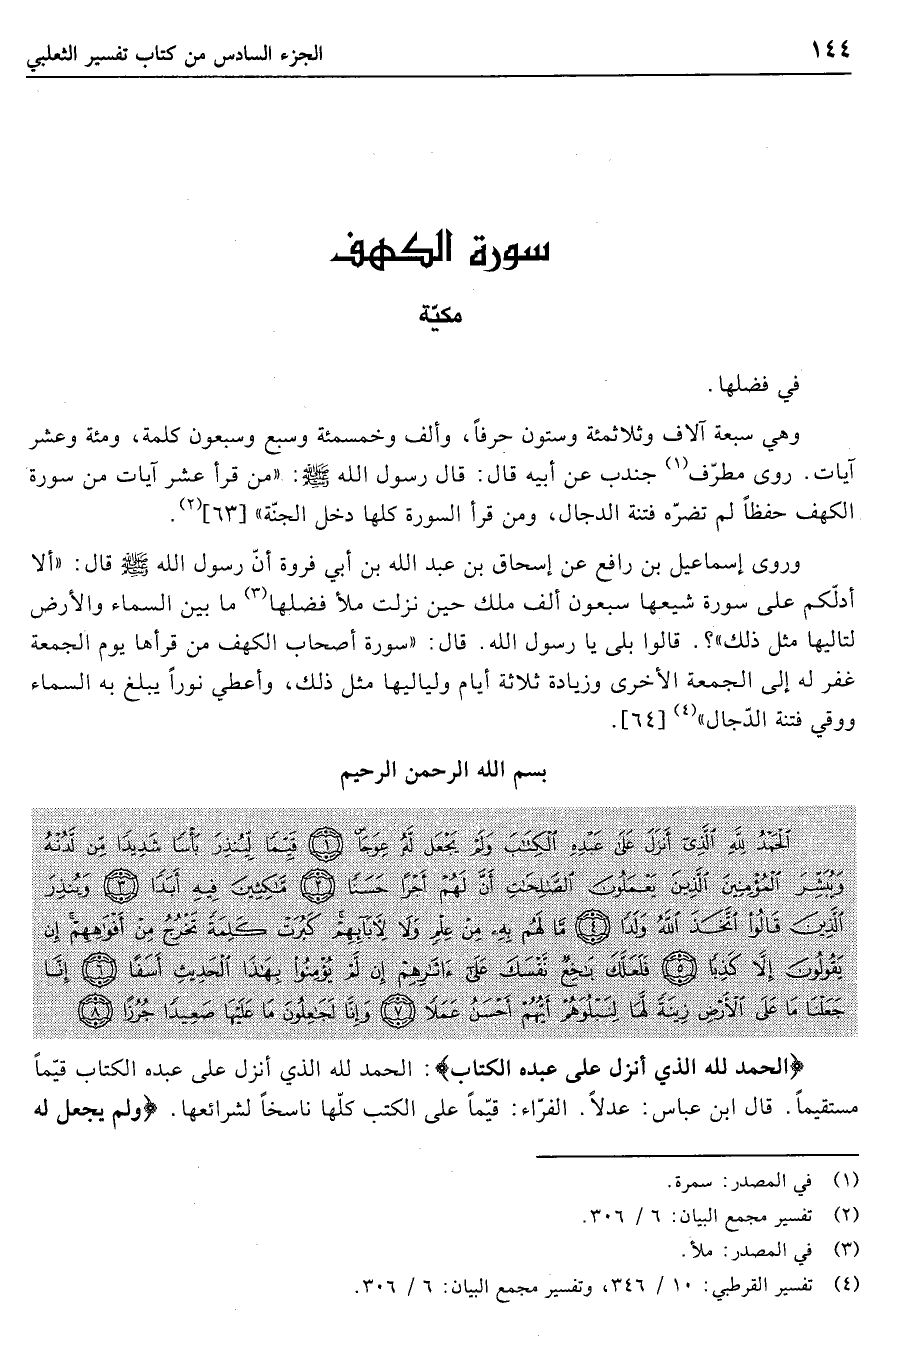 ١٤٤ الجزء السادس من كتاب تفسير الثعلبي
سورة الكهف
مكيّة
في فضلها.
وهي سبعة آلاف وثلاثمئة وستون حرفاً، وألف وخمسمئة وسبع وسبعون كلمة، ومئة وعشر
آيات. روى مطرّف(١) جندب عن أبيه قال: قال رسول الله ﷺ: «من قرأ عشر آيات من سورة
الكهف حفظاً لم تضرّه فتنة الدجال، ومن قرأ السورة كلها دخل الجنّة» [٦٣](٢).
وروى إسماعيل بن رافع عن إسحاق بن عبد الله بن أبي فروة أنّ رسول الله ﷺ قال: «ألا
أدلّكم على سورة شيعها سبعون ألف ملك حين نزلت ملأ فضلها(٣) ما بين السماء والأرض
لتاليها مثل ذلك»؟. قالوا بلى يا رسول الله. قال: «سورة أصحاب الكهف من قرأها يوم الجمعة
غفر له إلى الجمعة الأخرى وزيادة ثلاثة أيام ولياليها مثل ذلك، وأعطي نوراً يبلغ به السماء
ووقي فتنة الدّجال»(٤) [٦٤].
بسم الله الرحمن الرحيم
الْحَمْدُ لِلَّهِ الَّذِي أَنزَلَ عَلَىٰ عَبْدِهِ الْكِتَابَ وَلَمْ يَجْعَل لَّهُ عِوَجَا ﴿١﴾ قَيِّمًا لِّيُنذِرَ بَأْسًا شَدِيدًا مِّن لَّدُنْهُ
وَيُبَشِّرَ الْمُؤْمِنِينَ الَّذِينَ يَعْمَلُونَ الصَّالِحَاتِ أَنَّ لَهُمْ أَجْرًا حَسَنًا ﴿٢﴾ مَّاكِثِينَ فِيهِ أَبَدًا ﴿٣﴾ وَيُنذِرَ
الَّذِينَ قَالُوا اتَّخَذَ اللَّهُ وَلَدًا ﴿٤﴾ مَّا لَهُم بِهِ مِنْ عِلْمٍ وَلَا لِآبَائِهِمْ كَبُرَتْ كَلِمَةً تَخْرُجُ مِنْ أَفْوَاهِهِمْ إِن
يَقُولُونَ إِلَّا كَذِبًا ﴿٥﴾ فَلَعَلَّكَ بَاخِعٌ نَّفْسَكَ عَلَىٰ آثَارِهِمْ إِن لَّمْ يُؤْمِنُوا بِهَٰذَا الْحَدِيثِ أَسَفًا ﴿٦﴾ إِنَّا
جَعَلْنَا مَا عَلَى الْأَرْضِ زِينَةً لَّهَا لِنَبْلُوَهُمْ أَيُّهُمْ أَحْسَنُ عَمَلًا ﴿٧﴾ وَإِنَّا لَجَاعِلُونَ مَا عَلَيْهَا صَعِيدًا جُرُزًا ﴿٨﴾
﴿الحمد لله الذي أنزل على عبده الكتاب﴾: الحمد لله الذي أنزل على عبده الكتاب قيّماً
مستقيماً. قال ابن عباس: عدلاً. الفرّاء: قيّماً على الكتب كلّها ناسخاً لشرائعها. ﴿ولم يجعل له
(١) في المصدر: سمرة.
(٢) تفسير مجمع البيان: ٦ / ٣٠٦.
(٣) في المصدر: ملأ.
(٤) تفسير القرطبي: ١٠ / ٣٤٦، وتفسير مجمع البيان: ٦ / ٣٠٦.